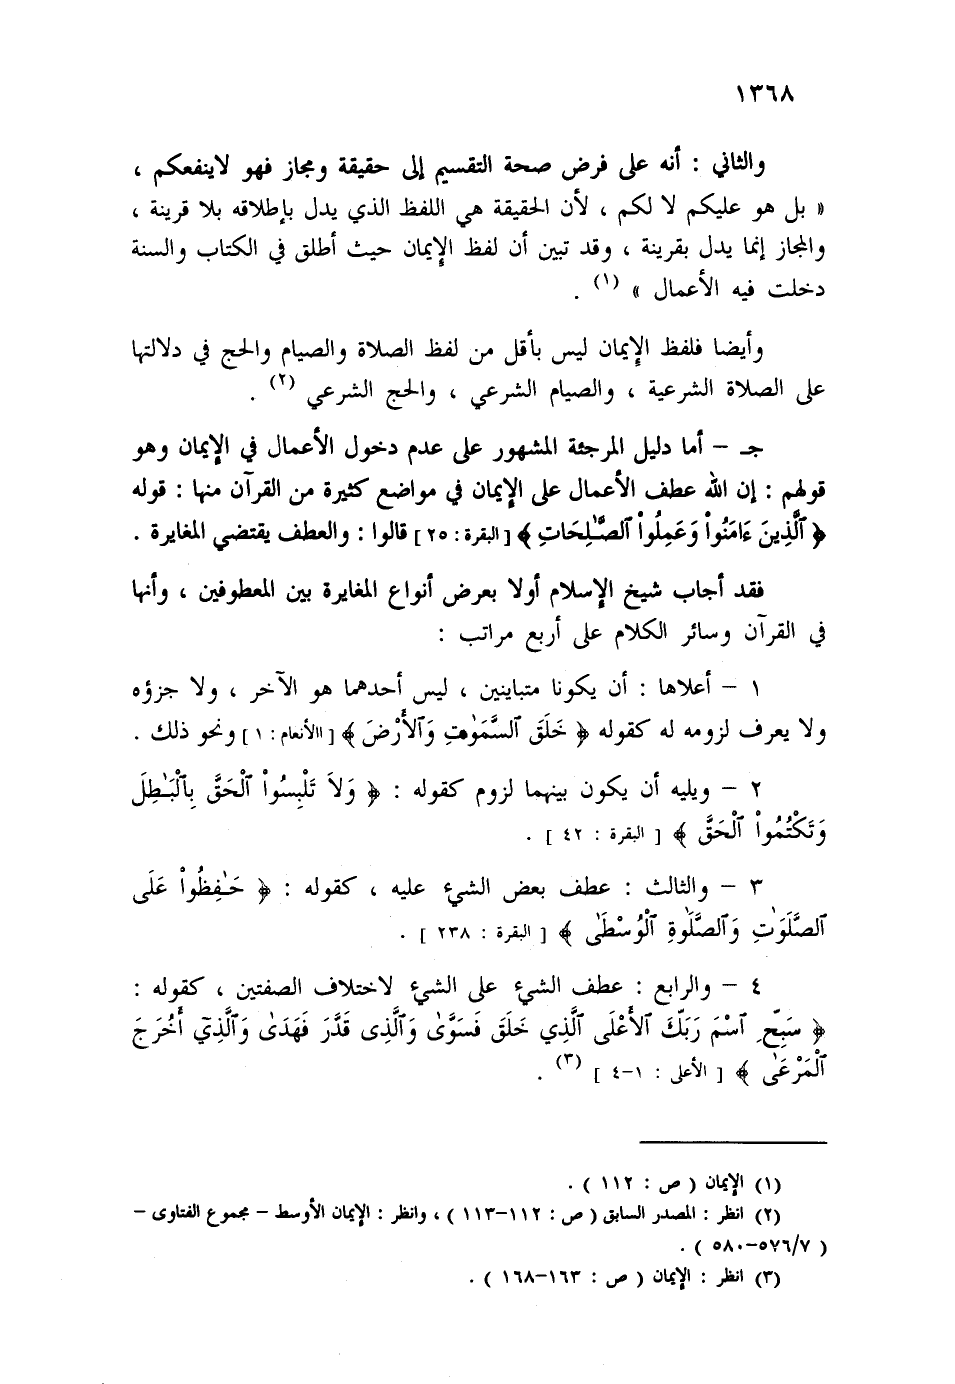 ١٣٦٨
والثاني : أنه على فرض صحة التقسيم إلى حقيقة ومجاز فهو لاينفعكم ،
« بل هو عليكم لا لكم ، لأن الحقيقة هي اللفظ الذي يدل بإطلاقه بلا قرينة ،
والمجاز إنما يدل بقرينة ، وقد تبين أن لفظ الإيمان حيث أطلق في الكتاب والسنة
دخلت فيه الأعمال » (١) .
وأيضا فلفظ الإيمان ليس بأقل من لفظ الصلاة والصيام والحج في دلالتها
على الصلاة الشرعية ، والصيام الشرعي ، والحج الشرعي (٢) .
جـ – أما دليل المرجئة المشهور على عدم دخول الأعمال في الإيمان وهو
قولهم : إن الله عطف الأعمال على الإيمان في مواضع كثيرة من القرآن منها : قوله
﴿ ٱلَّذِينَ ءَامَنُواْ وَعَمِلُواْ ٱلصَّـٰلِحَاتِ ﴾ [ البقرة : ٢٥ ] قالوا : والعطف يقتضي المغايرة .
فقد أجاب شيخ الإسلام أولا بعرض أنواع المغايرة بين المعطوفين ، وأنها
في القرآن وسائر الكلام على أربع مراتب :
١ – أعلاها : أن يكونا متباينين ، ليس أحدهما هو الآخر ، ولا جزؤه
ولا يعرف لزومه له كقوله ﴿ خَلَقَ ٱلسَّمَـٰوَٰتِ وَٱلأَرْضَ ﴾ [ الأنعام : ١ ] ونحو ذلك .
٢ – ويليه أن يكون بينهما لزوم كقوله : ﴿ وَلاَ تَلْبِسُواْ ٱلْحَقَّ بِٱلْبَـٰطِلَ
وَتَكْتُمُواْ ٱلْحَقَّ ﴾ [ البقرة : ٤٢ ] .
٣ – والثالث : عطف بعض الشيء عليه ، كقوله : ﴿ حَـٰفِظُواْ عَلَى
ٱلصَّلَوَٰتِ وَٱلصَّلَوٰةِ ٱلْوُسْطَىٰ ﴾ [ البقرة : ٢٣٨ ] .
٤ – والرابع : عطف الشيء على الشيء لاختلاف الصفتين ، كقوله :
﴿ سَبِّحِ ٱسْمَ رَبِّكَ ٱلأَعْلَى ٱلَّذِي خَلَقَ فَسَوَّىٰ وَٱلَّذِى قَدَّرَ فَهَدَىٰ وَٱلَّذِيٓ أَخْرَجَ
ٱلْمَرْعَىٰ ﴾ [ الأعلى : ١–٤ ] (٣) .
(١) الإيمان ( ص : ١١٢ ) .
(٢) انظر : المصدر السابق ( ص : ١١٢–١١٣ ) ، وانظر : الإيمان الأوسط – مجموع الفتاوى –
( ٥٧٦/٧–٥٨٠ ) .
(٣) انظر : الإيمان ( ص : ١٦٣–١٦٨ ) .